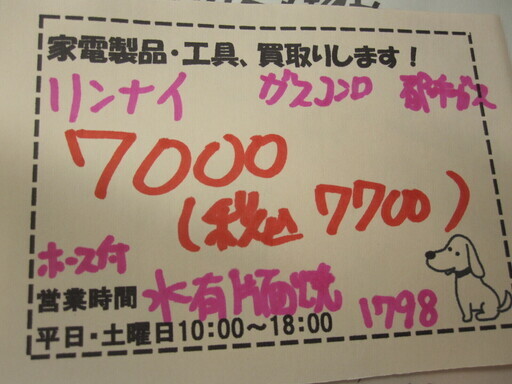 家電製品・工具、買取りします！
リンナイ ガスコンロ 都市ガス
7000
(税込 7700)
ホース付
営業時間 水有片面焼
平日・土曜日10:00～18:00 1798